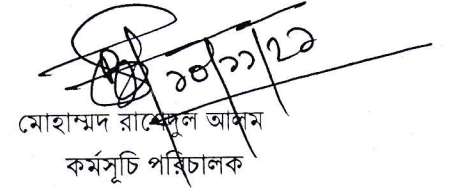 ১০/১১/২১
মোহাম্মদ রাশেদুল আলম
কর্মসূচি পরিচালক